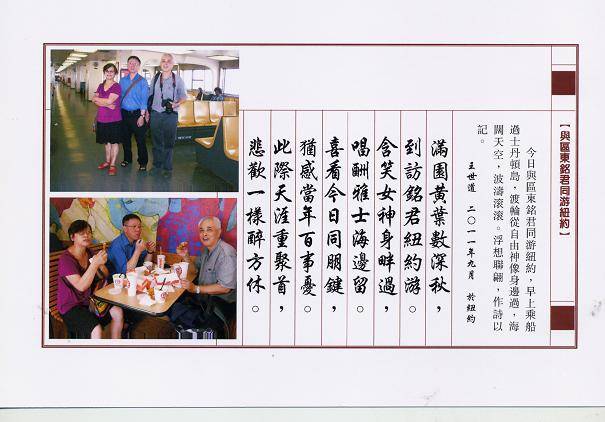 【與區東銘君同游紐約】
今日與區東銘君同游紐約，早上乘船
過士丹頓島，渡輪從自由神像身邊過，海
闊天空，波濤滾滾。浮想聯翩，作詩以
記。
王世道 二〇一一年九月 於紐約
滿園黃葉數深秋，
到訪銘君紐約游。
含笑女神身畔過，
唱酬雅士海邊留。
喜看今日同朋鍵，
猶感當年百事憂。
此際天涯重聚首，
悲歡一樣醉方休。